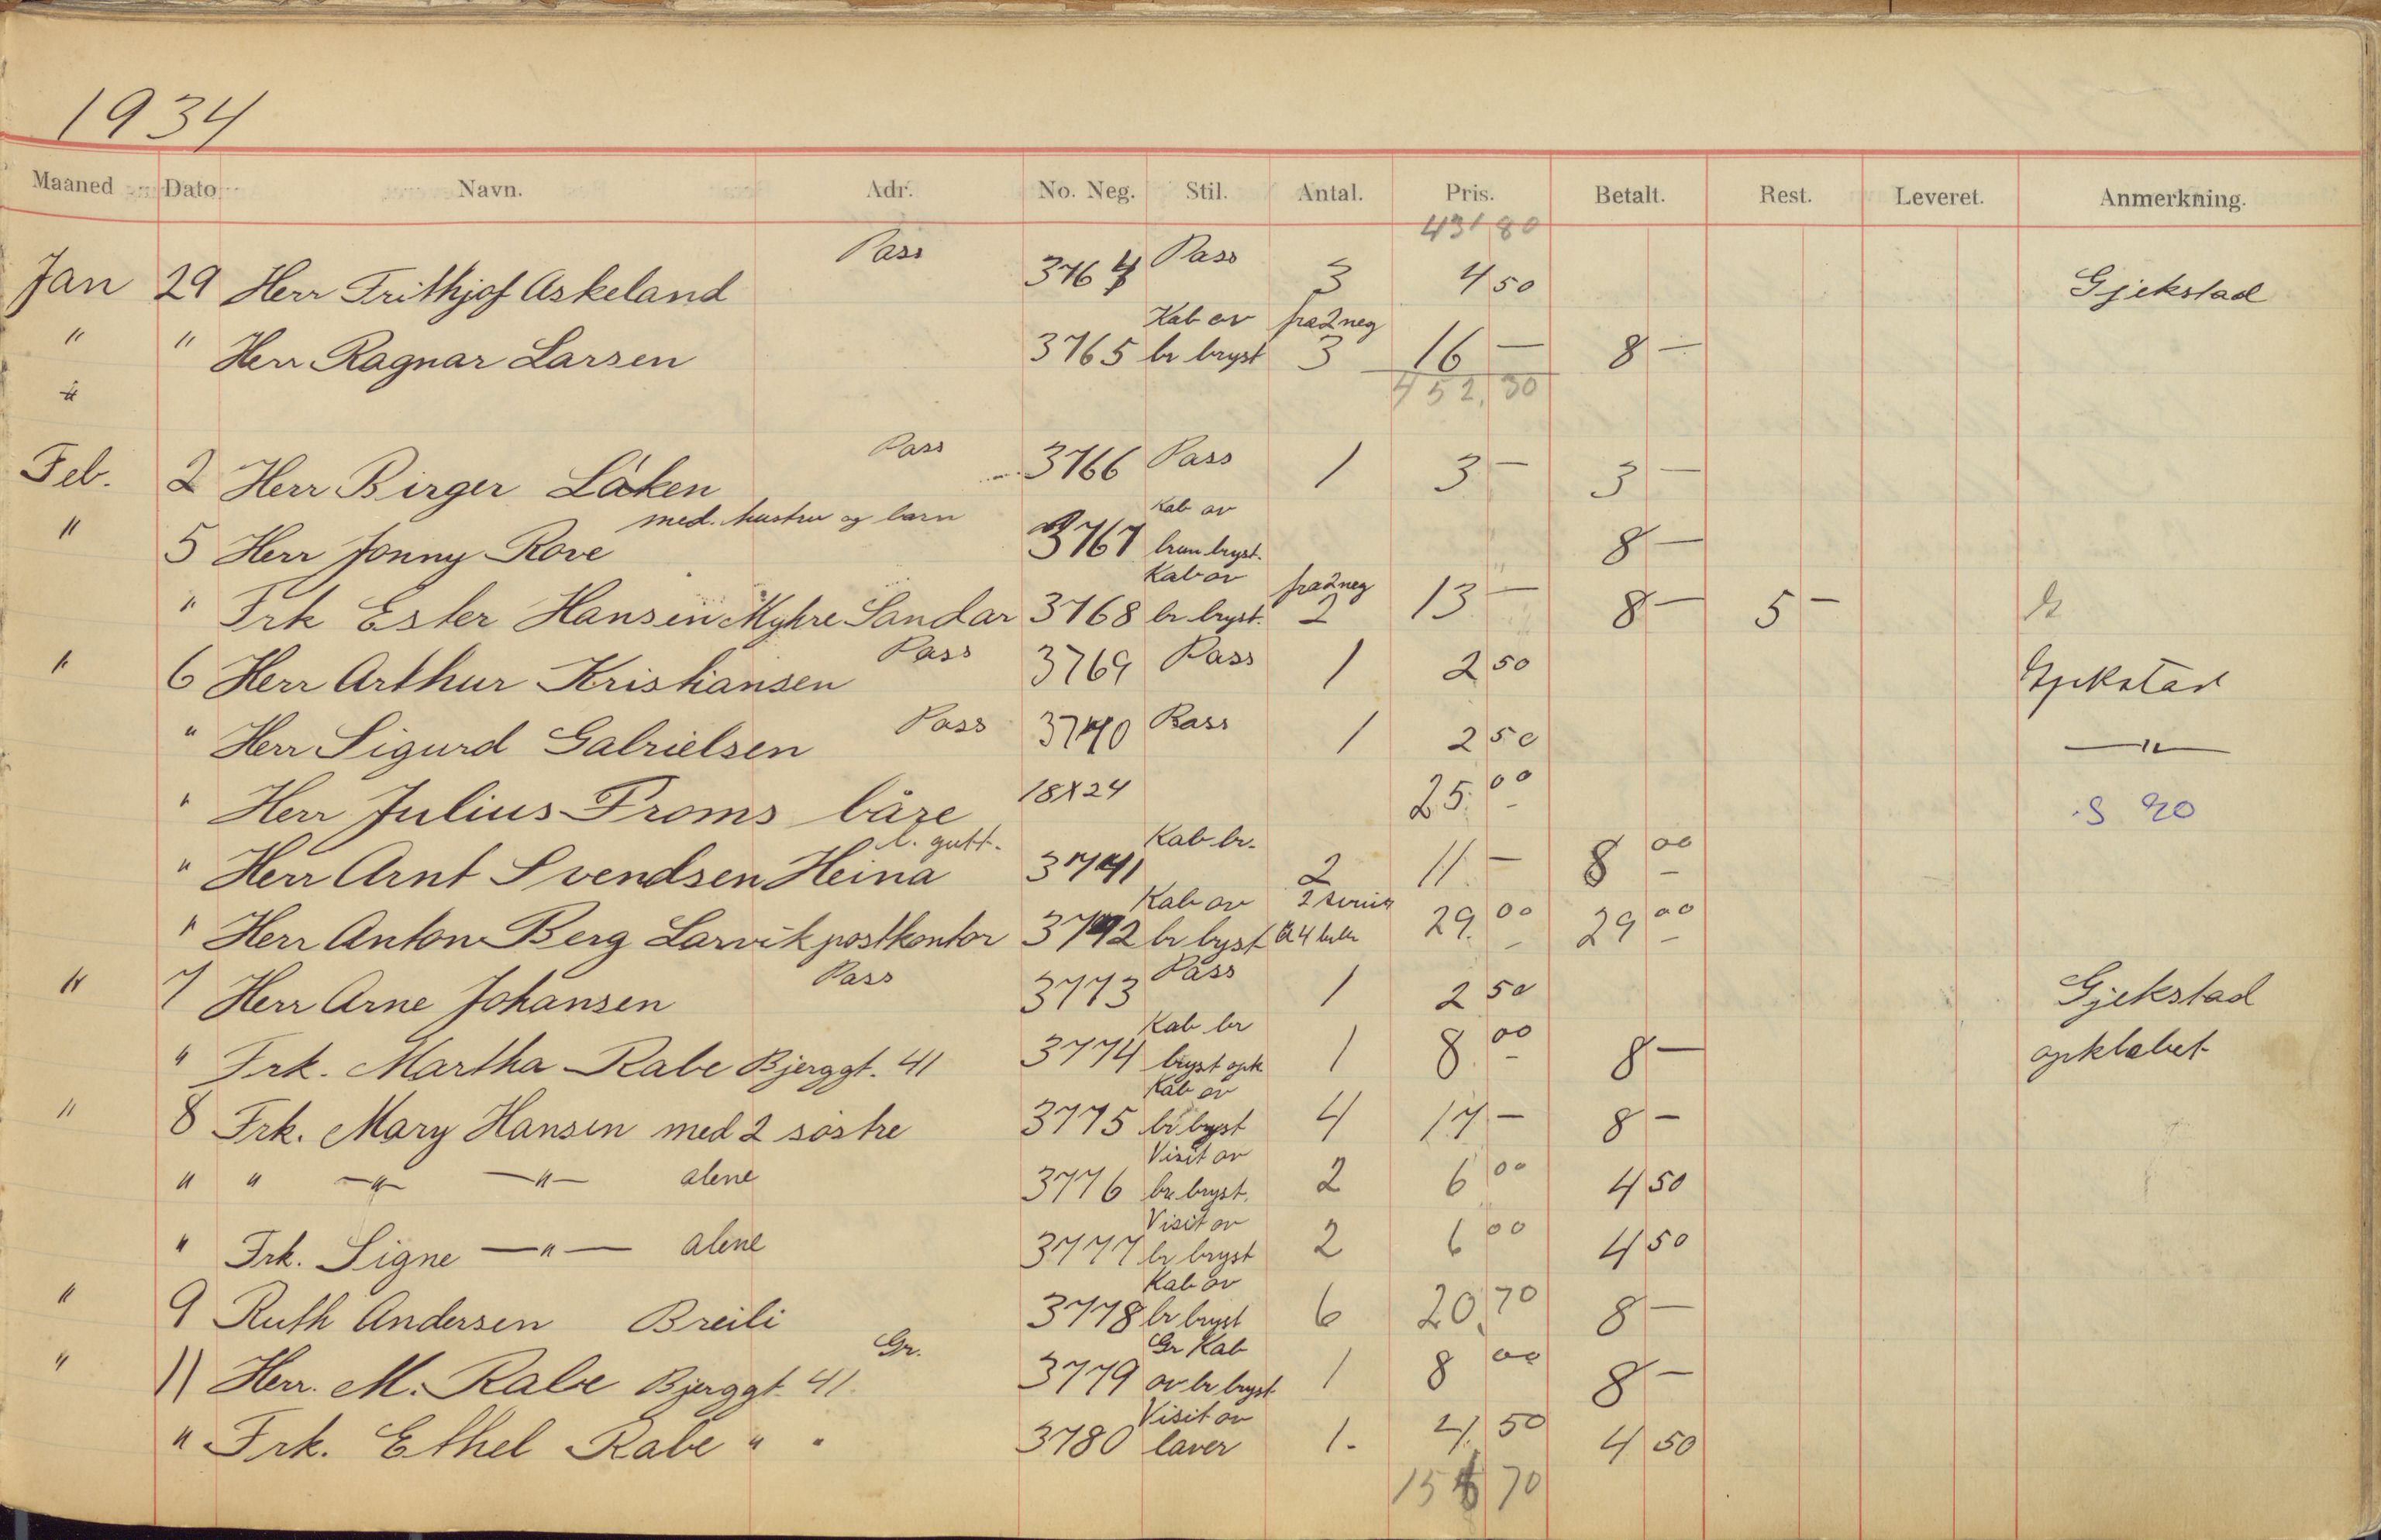 1934
Maaned Dato Navn. Adr. No. Neg. Stil. Antal. Pris. Betalt. Rest. Leveret. Anmerkning.
431 80
Jan 29 Herr Frithjof Askeland Pass 3764 Pass 3 4 50 Gjekstad
" " Herr Ragnar Larsen 3765 Kab av br bryst fra 2 neg 3 16 — 8 —
"
452,30
Feb. 2 Herr Birger Låken Pass 3766 Pass 1 3 — 3 —
" 5 Herr Jonny Rove med. hustru og barn 3767 Kab av brun bryst. 8 —
" Frk Ester Hansen Myhre Sandar 3768 Kab av br. bryst. fra 2 neg 2 13 — 8 — 5 —
" 6 Herr Arthur Kristiansen Pass 3769 Pass 1 2 50 Gjekstad
" Herr Sigurd Gabrielsen Pass 3770 Pass 1 2 50 —"—
" Herr Julius Froms båre 18X24 25.00 S 20
" Herr Arnt Svendsen Heina l. gutt. 3771 Kab br. 2 11 — 8 00
" Herr Anton Berg Larvik postkontor 3772 Kab av br bryst 2 a 4 29.00 29 00
" 7 Herr Arne Johansen Pass 3773 Pass 1 2 50 Gjekstad
" Frk. Martha Rabe Bjerggt. 41 3774 Kab br bryst opk 1 8 00 8 — opklæbet
" 8 Frk. Mary Hansen med 2 søstre 3775 Kab av br bryst 4 17 — 8 —
" " —"— —"— alene 3776 Visit av br. bryst. 2 6 00 4 50
" Frk. Signe —"— alene 3777 Visit av br bryst 2 6 00 4 50
" 9 Ruth Andersen Breili 3778 Kab av br bryst 6 20,70 8 —
" 11 Herr. M. Rabe Bjerggt. 41. Gr. 3779 Gr Kab av br bryst 1 8 00 8 —
" Frk. Ethel Rabe " " 3780 Visit av laver 1. 4.50 4 50
70